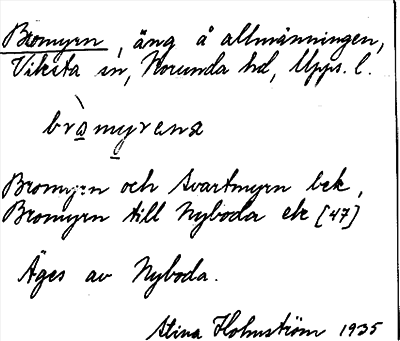 Bromyrn, äng å allmänningen,
Viksta sn, Norunda hd, Upps. l.
bròmyrena
Bromyrn och Svartmyrn bek,
Bromyrn till Nyboda ek [47]
Äges av Nyboda.
Stina Holmström 1935